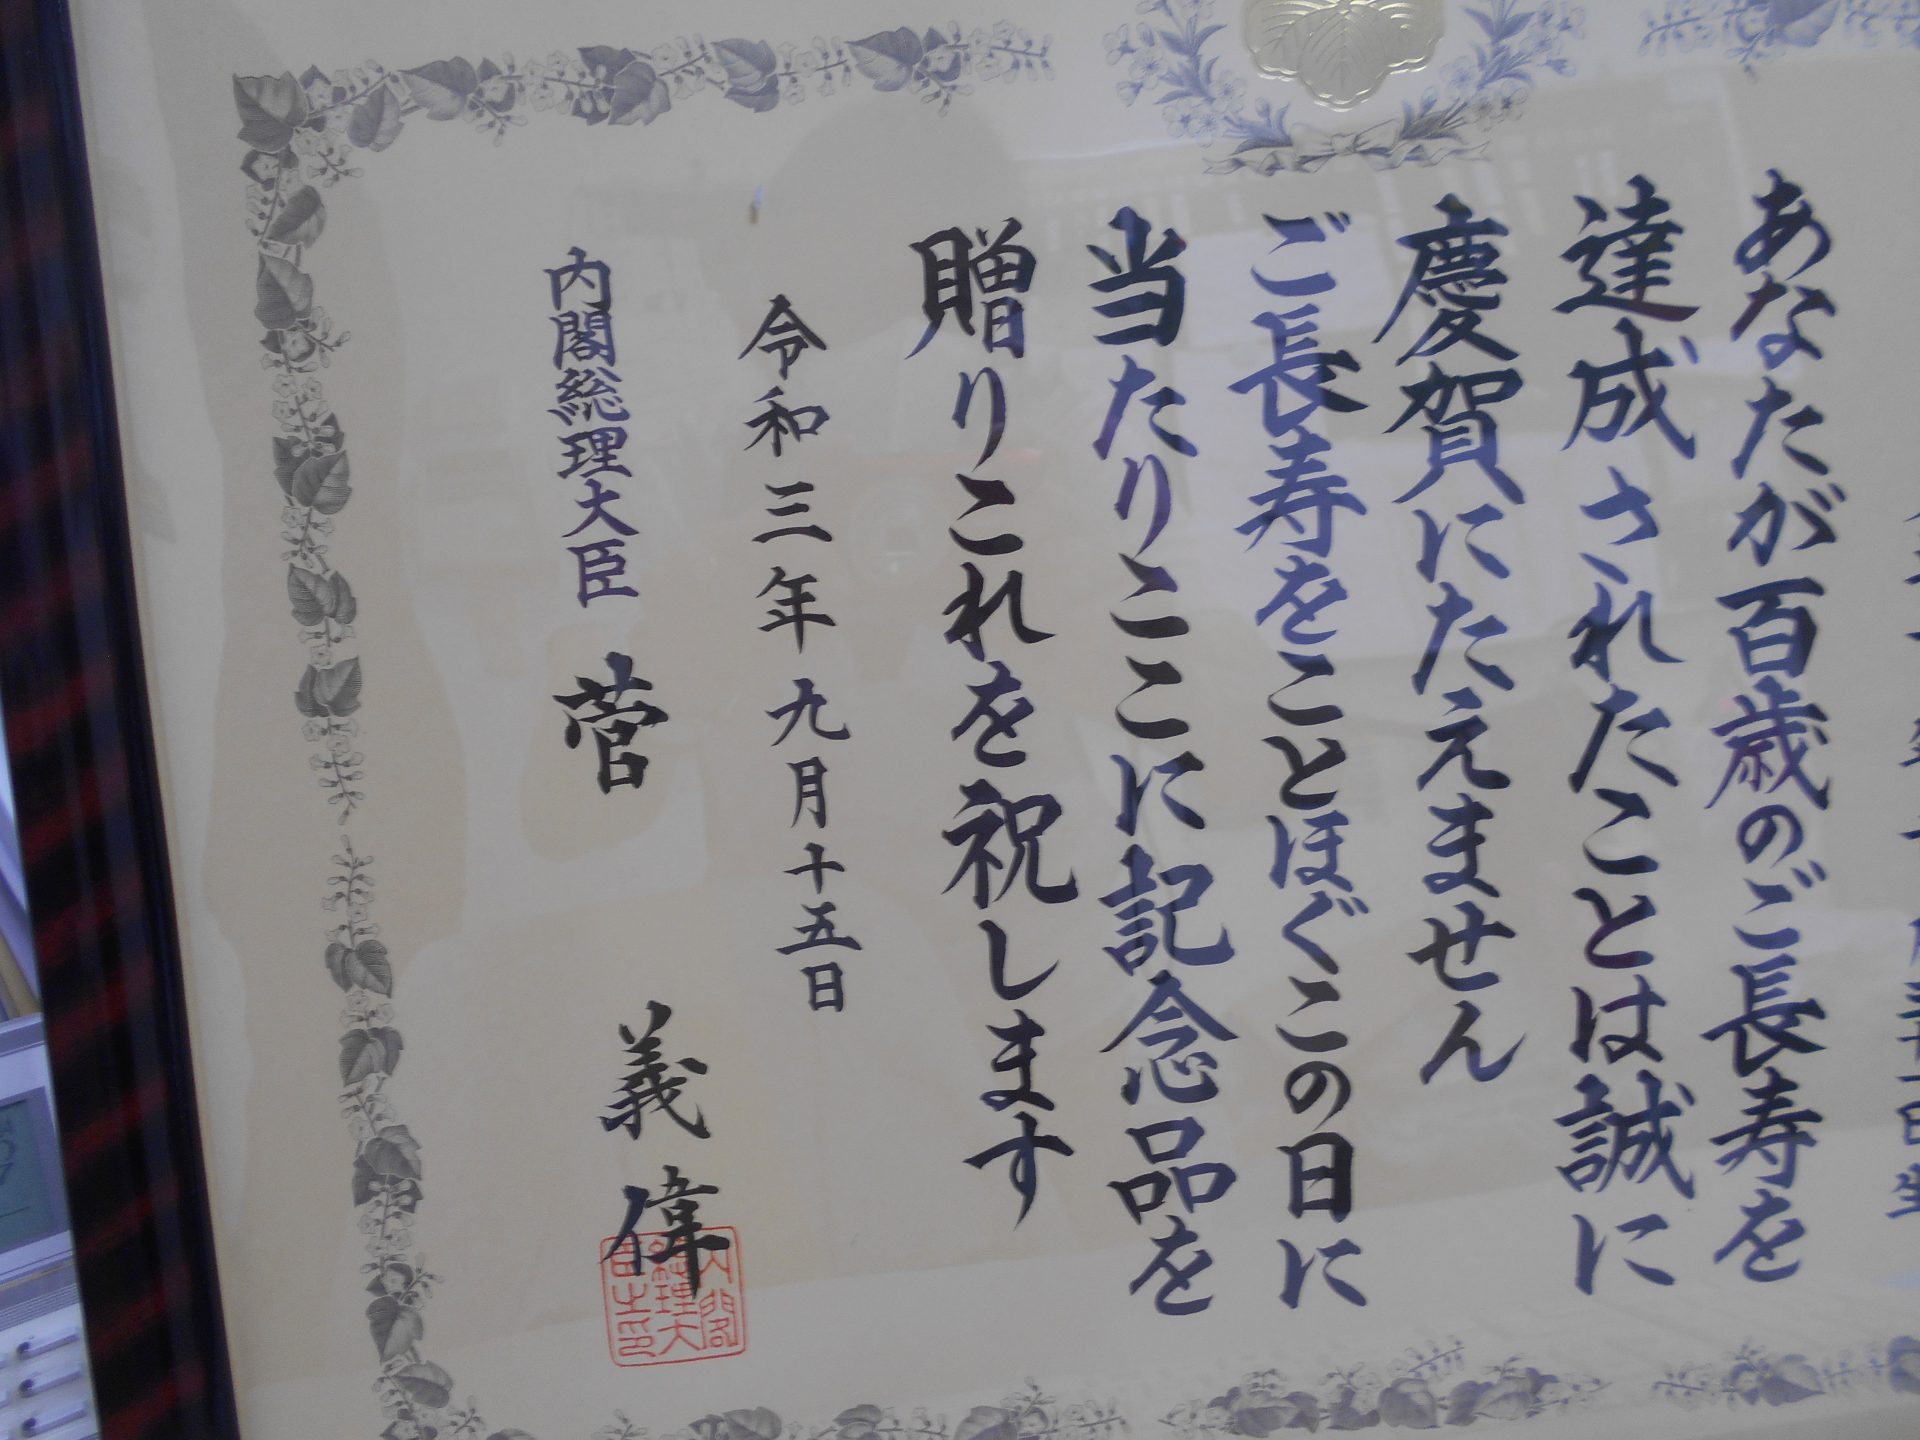 あなたが百歳のご長寿を
達成されたことは誠に
慶賀にたえません
ご長寿をことほぐこの日に
当たりここに記念品を
贈りこれを祝します
令和三年九月十五日
内閣総理大臣 菅 義偉
内閣
総理大
臣之印